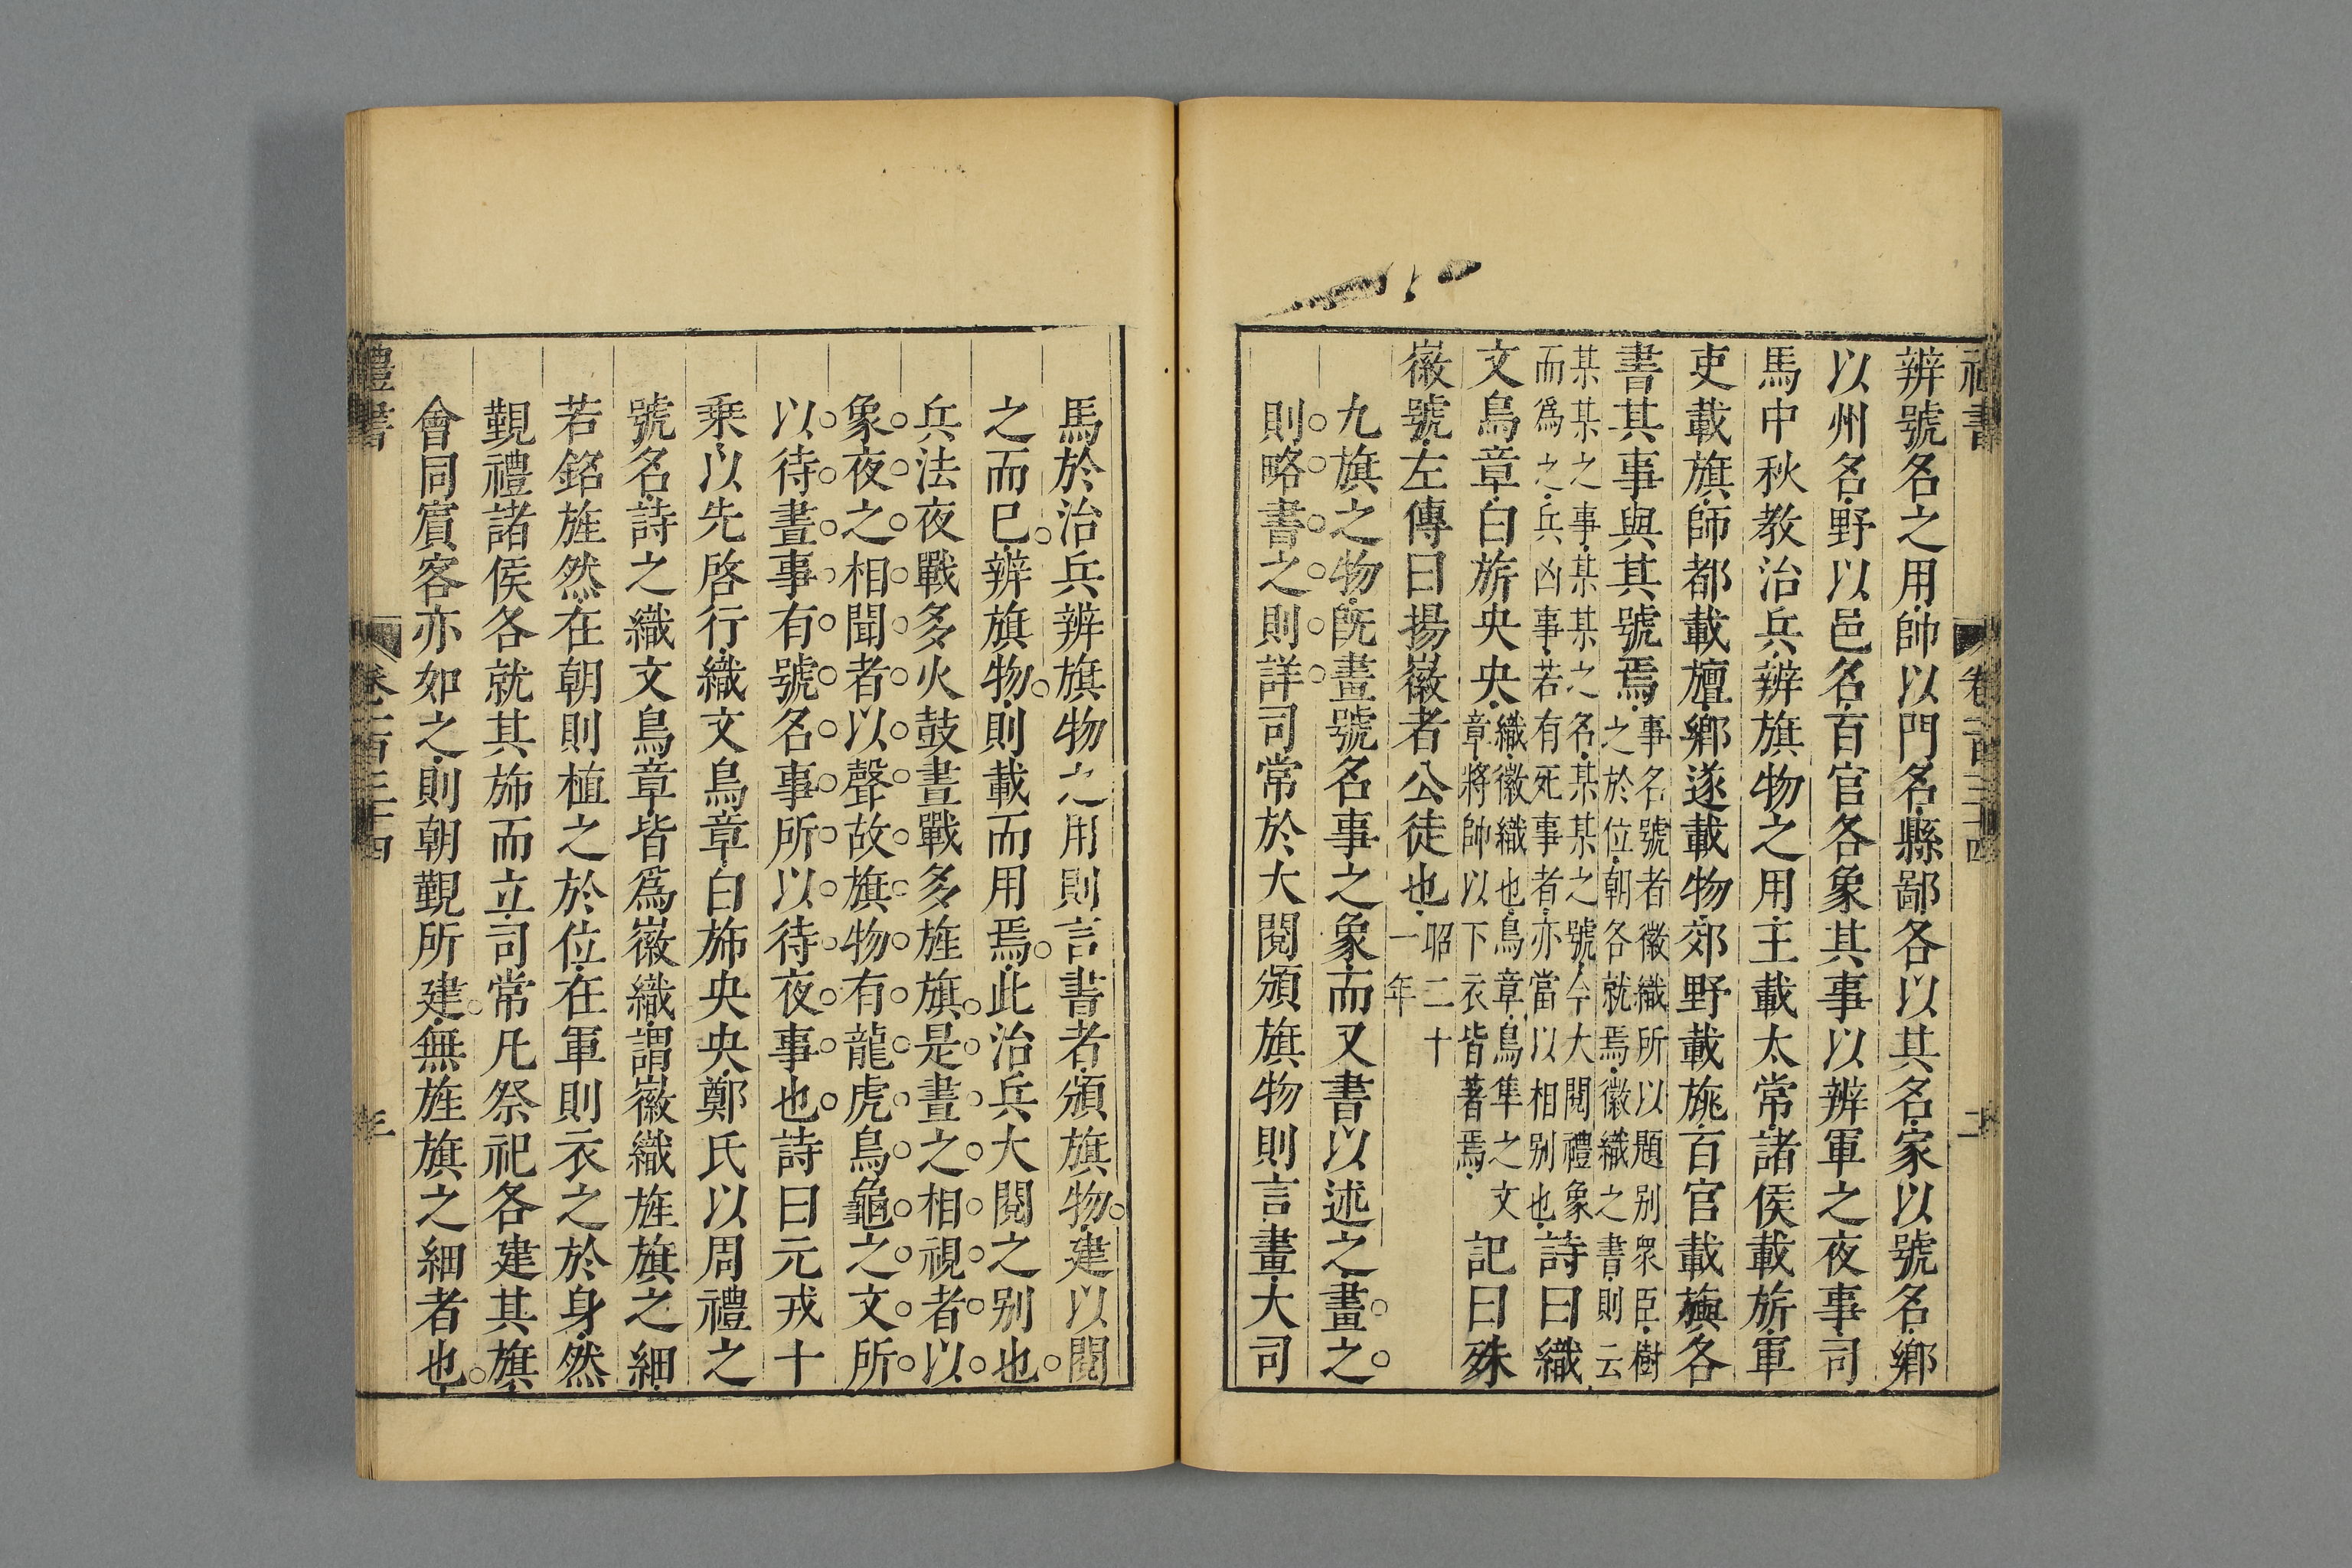 辨號名之用帥以門名縣鄙各以其名家以號名鄉
以州名野以邑名百官各象其事以辨軍之夜事司
馬中秋教治兵辨旗物之用主載太常諸侯載旂軍
吏載旗師都載旜鄉遂載物郊野載旐百官載旟各
書其事與其號焉事名號者徽織所以題别眾臣樹
之於位朝各就焉徽織之書則云
某某之事某某之名某某之號今大閱禮象
而爲之兵凶事若有死事者亦當以相别也詩曰織
文鳥章白旂央央織徽織也鳥章鳥隼之文
章將帥以下衣皆著焉記曰殊
徽號左傳曰揚徽者公徒也昭二十
一年
九旗之物既畫號名事之象而又書以述之畫之
則略書之則詳司常於大閱頒旗物則言畫大司
馬於治兵辨旗物之用則言書者頒旗物建以閱
之而已辨旗物則載而用焉此治兵大閱之别也
兵法夜戰多火鼓晝戰多旌旗是晝之相視者以
象夜之相聞者以聲故旗物有龍虎鳥龜之文所
以待晝事有號名事所以待夜事也詩曰元戎十
乘以先啓行織文鳥章白斾央央鄭氏以周禮之
號名詩之織文鳥章皆爲徽織謂徽織旌旗之細
若銘旌然在朝則植之於位在軍則衣之於身然
覲禮諸侯各就其斾而立司常凡祭祀各建其旗
會同賓客亦如之則朝覲所建無旌旗之細者也
禮書
卷一百三十四